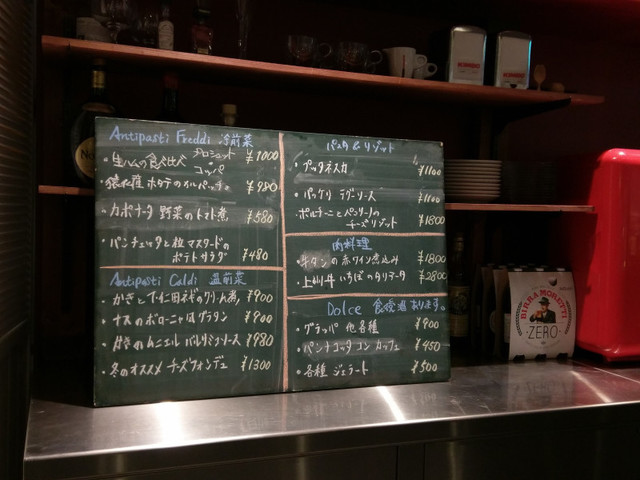 Antipasti Freddi 冷前菜
・生ハムの食べ比べ プロシュット ¥1000
・コッパ
ホタテのカルパッチョ ¥980
・カポナータ 野菜のトマト煮 ¥580
・パンチェッタと粒マスタードの
ポテトサラダ ¥480
Antipasti Caldi 温前菜
・かきと下仁田ネギのクリーム煮 ¥900
・ナスのボローニャ風グラタン ¥900
のムニエル バルサミコソース ¥980
・冬のオススメ チーズフォンデュ ¥1300
パスタ&リゾット
・プッタネスカ ¥1100
・パッケリ ラグーソース ¥1100
・ポルチーニとパンチェッタの
チーズリゾット ¥1800
肉料理
・牛タンの赤ワイン煮込み ¥1800
・上州牛 いちぼのタリアータ ¥2800
Dolce 食後酒あります。
・グラッパ 他各種 ¥900
・パンナコッタ コン カッフェ ¥450
・各種 ジェラート ¥500
BIRRA MORETTI
ZERO